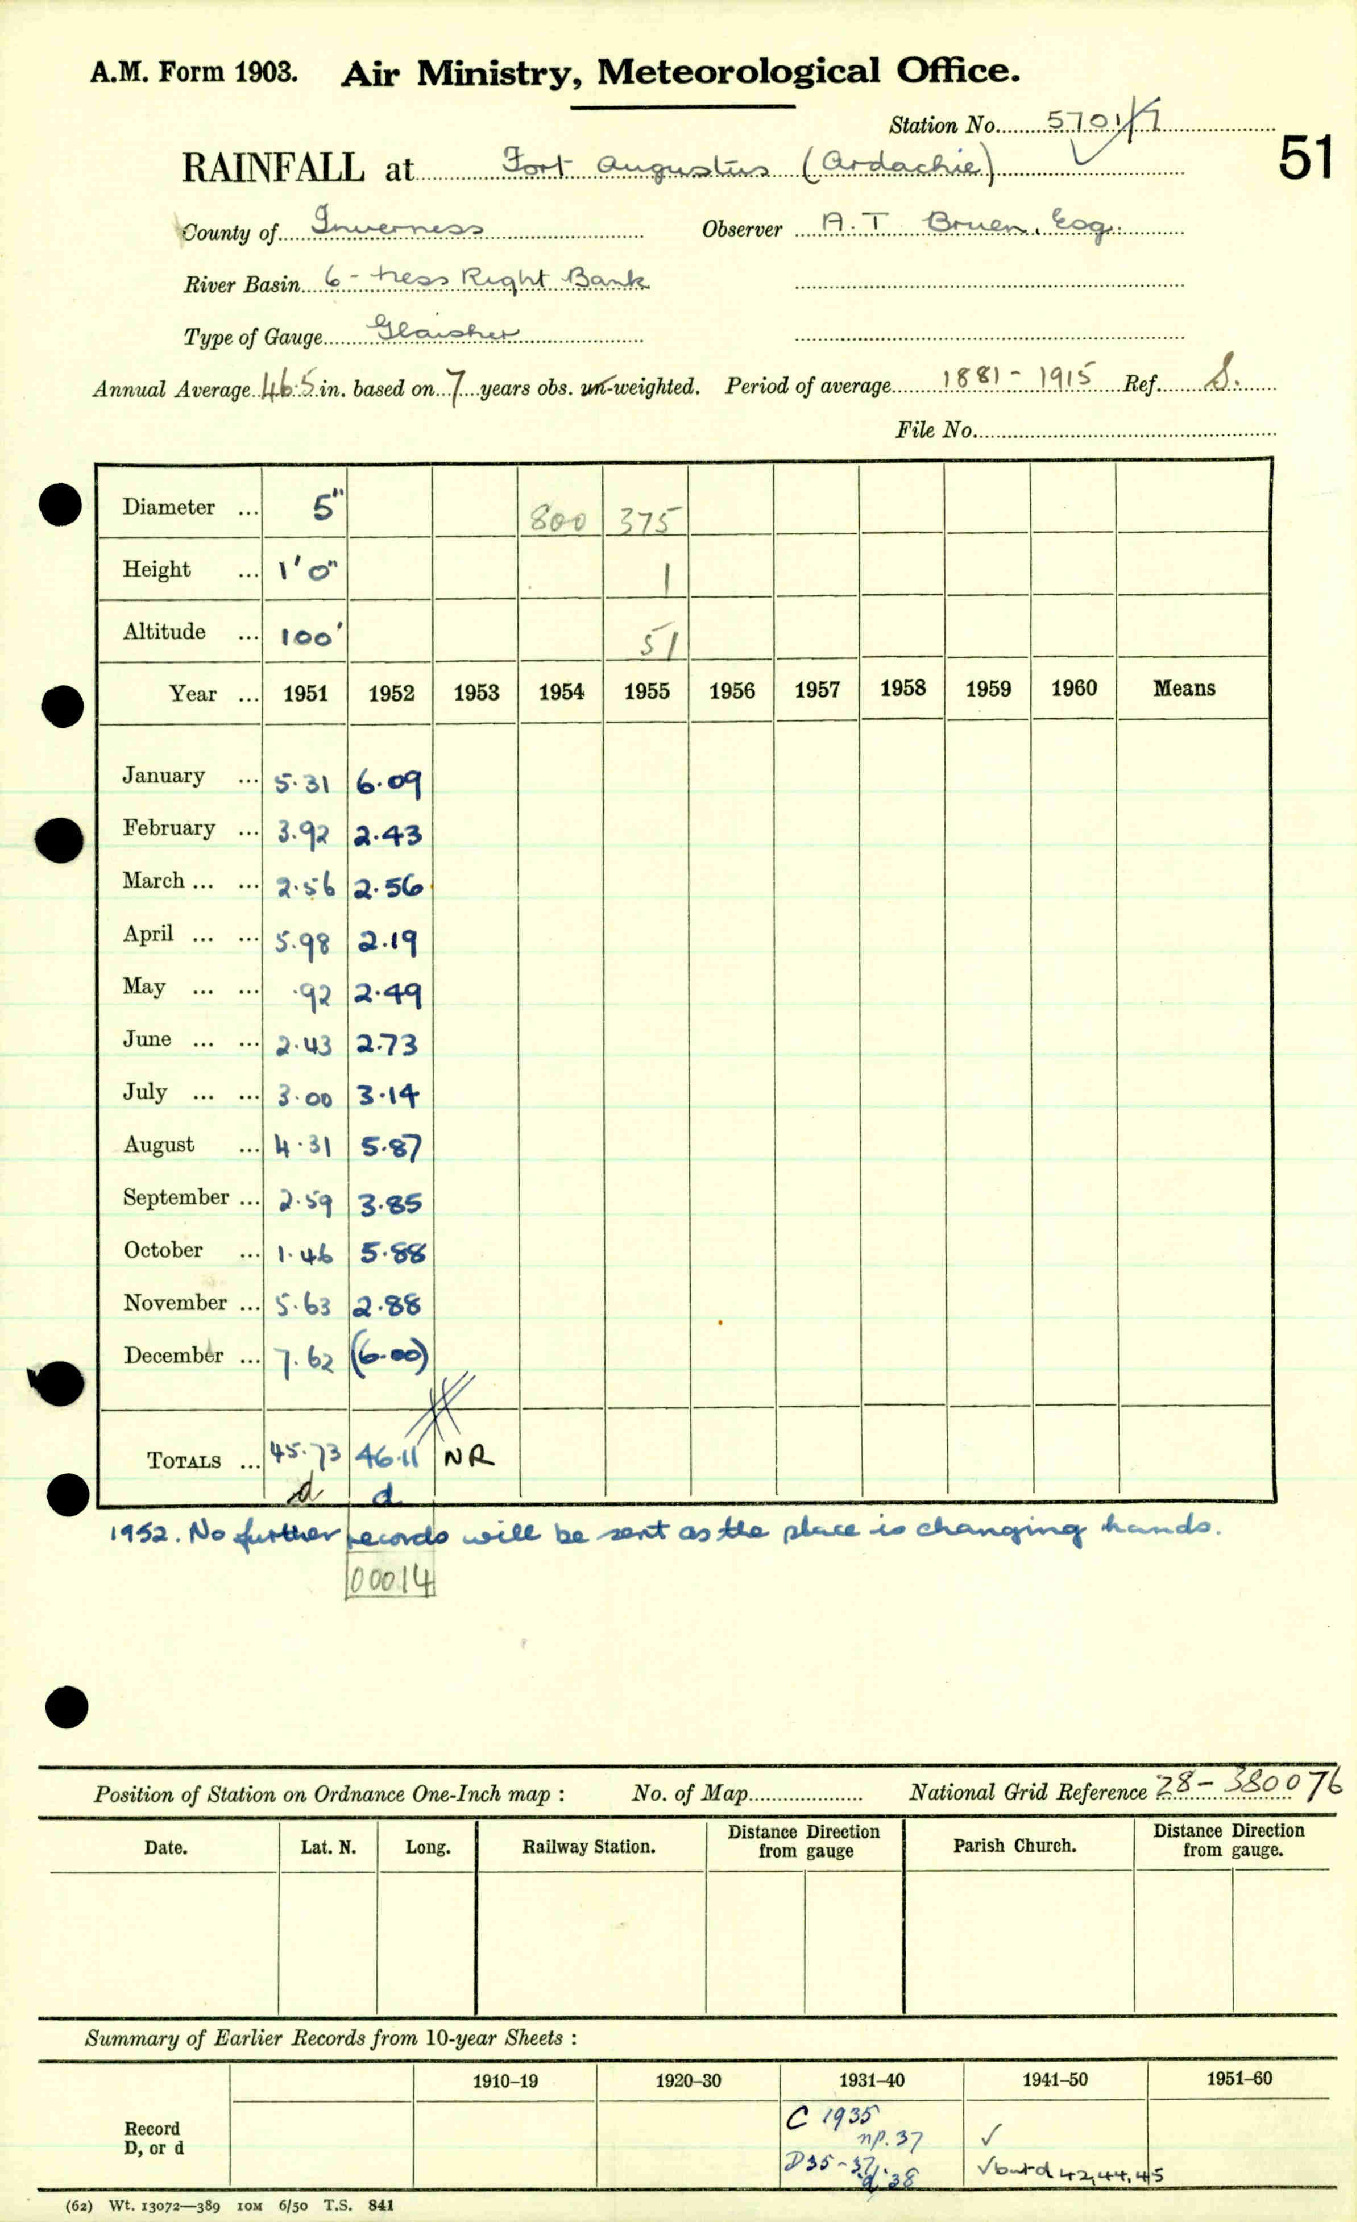 A.M. Form 1903. Air Ministry, Meteorological Office.
Station No. 5701/7
51
RAINFALL at Fort Augustus (Ardachie)
County of Inverness Observer A.T. Bruen, Esq.
River Basin 6 - Ness Right Bank
Type of Gauge Glaisher
Annual Average 46.5 in. based on 7 years obs. un-weighted. Period of average 1881 - 1915 Ref. S.
File No.
Diameter ... 5" 800 375
Height ... 1'0" 1
Altitude ... 100' 51
Year ... 1951 1952 1953 1954 1955 1956 1957 1958 1959 1960 Means
January ... 5.31 6.09
February ... 3.92 2.43
March ... ... 2.56 2.56
April ... ... 5.98 2.19
May ... ... .92 2.49
June ... ... 2.43 2.73
July ... ... 3.00 3.14
August ... 4.31 5.87
September ... 2.59 3.85
October ... 1.46 5.88
November ... 5.63 2.88
December ... 7.62 (6.00)
TOTALS ... 45.73 46.11 NR
d d
1952. No further records will be sent as the place is changing hands.
00014
Position of Station on Ordnance One-Inch map : No. of Map National Grid Reference 28 - 380076
Date. Lat. N. Long. Railway Station. Distance from Direction gauge Parish Church. Distance from Direction gauge.
Summary of Earlier Records from 10-year Sheets :
1910–19 1920–30 1931–40 1941–50 1951–60
Record
D, or d
C 1935
np. 37 ✓
D35-37, d. 38 ✓ but d 42,44,45
(62) Wt. 13072—389 10M 6/50 T.S. 841